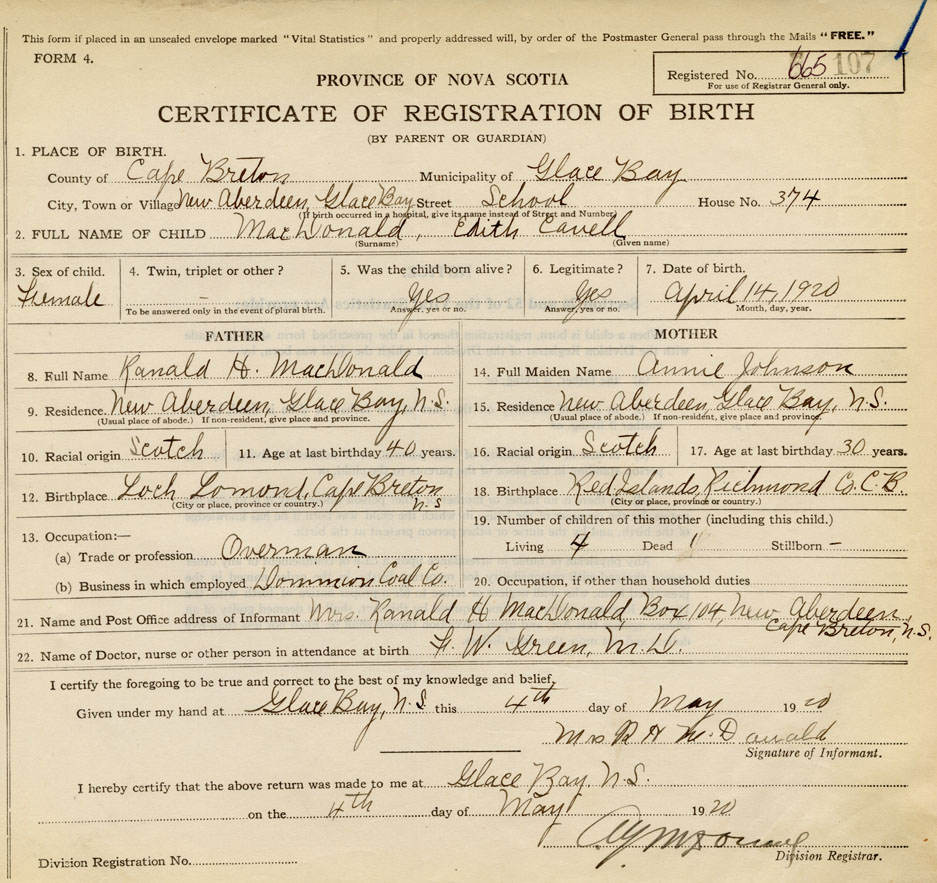 This form if placed in an unsealed envelope marked "Vital Statistics" and properly addressed will, by order of the Postmaster General pass through the Mails "FREE."
FORM 4.
Registered No. 665 107
For use of Registrar General only.
PROVINCE OF NOVA SCOTIA
CERTIFICATE OF REGISTRATION OF BIRTH
(BY PARENT OR GUARDIAN)
1. PLACE OF BIRTH.
County of Cape Breton Municipality of Glace Bay
City, Town or Village New Aberdeen, Glace Bay Street School House No. 374
(If birth occurred in a hospital, give its name instead of Street and Number)
2. FULL NAME OF CHILD MacDonald, Edith Cavell
(Surname) (Given name)
3. Sex of child. 4. Twin, triplet or other? 5. Was the child born alive? 6. Legitimate? 7. Date of birth.
Female – Yes Yes April 14, 1920
To be answered only in the event of plural birth. Answer, yes or no. Answer, yes or no. Month, day, year.
FATHER MOTHER
8. Full Name Ranald H. MacDonald 14. Full Maiden Name Annie Johnson
9. Residence. New Aberdeen, Glace Bay, N.S. 15. Residence New Aberdeen, Glace Bay, N.S.
(Usual place of abode.) If non-resident, give place and province. (Usual place of abode.) If non-resident, give place and province.
10. Racial origin Scotch 11. Age at last birthday 40 years. 16. Racial origin Scotch 17. Age at last birthday 30 years.
12. Birthplace Loch Lomond, Cape Breton N.S 18. Birthplace Red Islands, Richmond Co. C.B.
(City or place, province or country.) (City or place, province or country.)
19. Number of children of this mother (including this child.)
13. Occupation:—
(a) Trade or profession Overman Living 4 Dead 1 Stillborn –
(b) Business in which employed Dominion Coal Co. 20. Occupation, if other than household duties
21. Name and Post Office address of Informant Mrs. Ranald H MacDonald, Box 104, New Aberdeen,
Cape Breton, N.S.
22. Name of Doctor, nurse or other person in attendance at birth F. W. Green, M.D.
I certify the foregoing to be true and correct to the best of my knowledge and belief.
Given under my hand at Glace Bay, N.S this 4th day of May 1920
Mrs R H McDonald
Signature of Informant.
I hereby certify that the above return was made to me at Glace Bay, N.S.
on the 4th day of May 1920
Division Registrar.
Division Registration No.